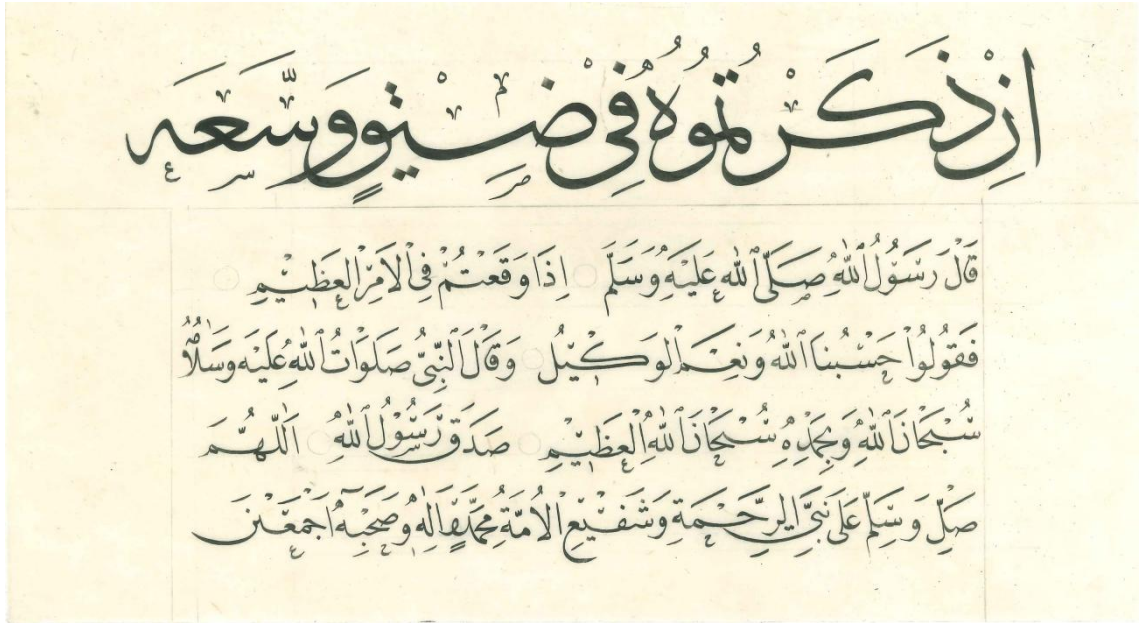 اِنْ ذَكَرْتُمُوهُ فِى ضِيْقٍ وَسَّعَهَ
قَالَ رَسُولُ اللّٰهِ صَلَّى اللّٰهُ عَلَيْهِ وَسَلَّمَ اِذَا وَقَعْتُمْ فِى الْاَمْرِ الْعَظِيْمِ
فَقُولُوْا حَسْبُنَا اللّٰهُ وَنِعْمَ الْوَكِيْلُ وَقَالَ النَّبِىُّ صَلَوَاتُ اللّٰهِ عَلَيْهِ وَسَلَامُهُ
سُبْحَانَ اللّٰهِ وَبِحَمْدِهِ سُبْحَانَ اللّٰهِ الْعَظِيْمِ صَدَقَ رَسُوْلُ اللّٰهِ اَللّٰهُمَّ
صَلِّ وَسَلِّمْ عَلَى نَبِىِّ الرَّحْمَةِ وَشَفِيْعِ الْاُمَّةِ مُحَمَّدٍ وَاٰلِهِ وَصَحْبِهِ اَجْمَعِيْنَ